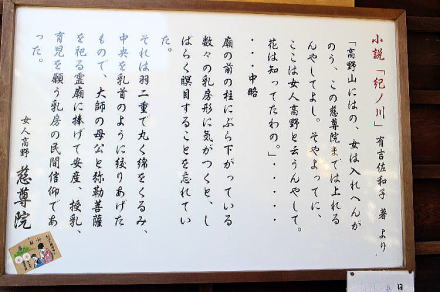 小説「紀ノ川」 有吉佐和子 著 より
「高野山にはの、女は入れへんが
のう、この慈尊院までは上れる
んやしてよし。そやよってに、
ここは女人高野と云うんやして。
花は知ってたわの。」・・・・
・・・中略
廟の前の柱にぶら下がっている
数々の乳房形に気がつくと、し
ばらく瞑目することを忘れてい
た。
それは羽二重で丸く綿をくるみ、
中央を乳首のように絞りあげた
もので、大師の母公と弥勒菩薩
を祀る霊廟に捧げて安産、授乳、
育児を願う乳房の民間信仰であ
った。
女人高野 慈尊院